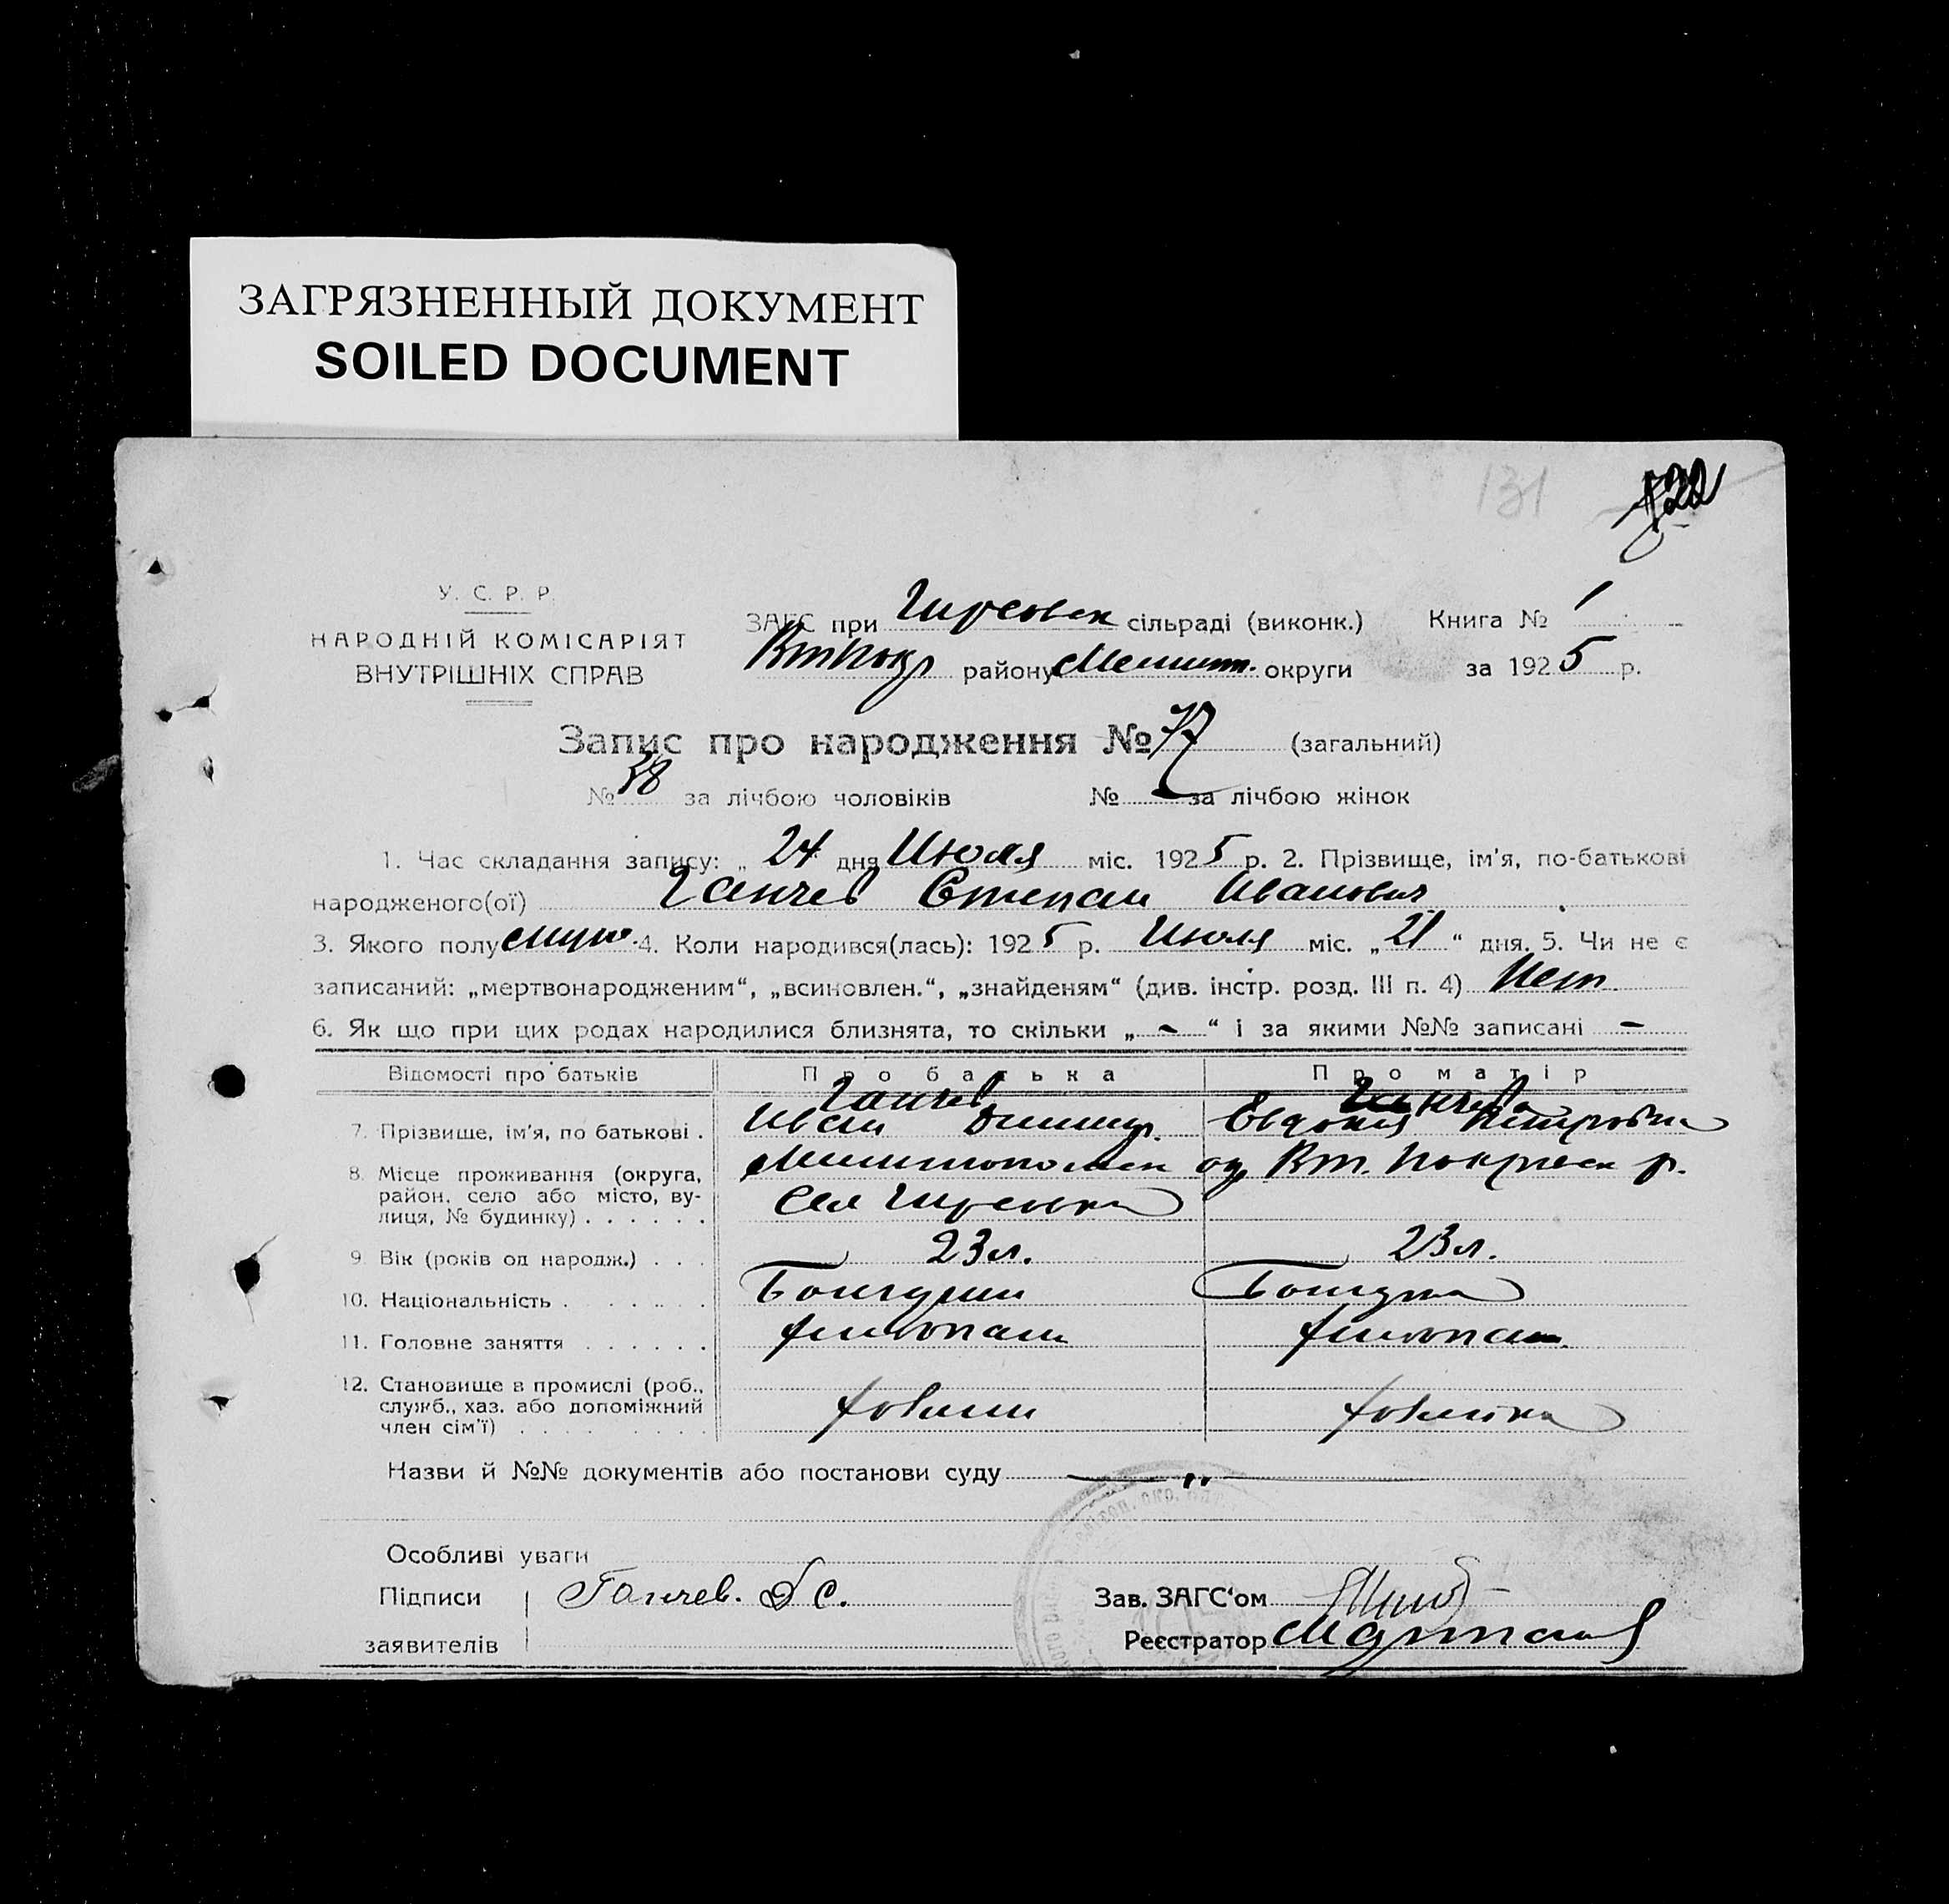 ЗАГРЯЗНЕННЫЙ ДОКУМЕНТ
SOILED DOCUMENT
131
У. С. Р. Р.
НАРОДНІЙ КОМІСАРІЯТ
ВНУТРІШНІХ СПРАВ
ЗАГС при Гирсовск сільраді (виконк.) Книга № 1
Втпокр району Мелит. округи за 1925 р.
Запис про народження № 77 (загальний)
№ 38 за лічбою чоловіків № за лічбою жінок
1. Час складання запису: „ 24 дня Июля міс. 1925 р. 2. Прізвище, ім'я, по-батькові
народженого(ої) Ганчев Степан Иванович
3. Якого полу муж. 4. Коли народився(лась): 1925 р. Июля міс. „21“ дня. 5. Чи не є
записаний: „мертвонародженим“, „всиновлен.“, „знайденям“ (див. інстр. розд. III п. 4) Нет
6. Як що при цих родах народилися близнята, то скільки „-“ і за якими №№ записані -
Відомості про батьків Про батька Про матір
Ганчев Ганчева
7. Прізвище, ім'я, по батькові . Иван Димитр. Евдокия Петровна
8. Місце проживання (округа, Мелитополск ок, Вт. Покровск р.
район, село або місто, ву- Сел Гирсовка
лиця, № будинку) . . . . . .
9. Вік (років од народж.) . . . 23 л. 23 л.
10. Національність . . . . . . . Болгарин Болгарка
11. Головне заняття . . . . . . хлебопаш хлебопаш.
12. Становище в промислі (роб., хозяин хозяйка
служб., хаз. або допоміжний
член сім'ї) . . . . . . . .
Назви й №№ документів або постанови суду — „ —
Особливі уваги
Підписи Ганчев. С. Зав. ЗАГС'ом
заявителів Реєстратор